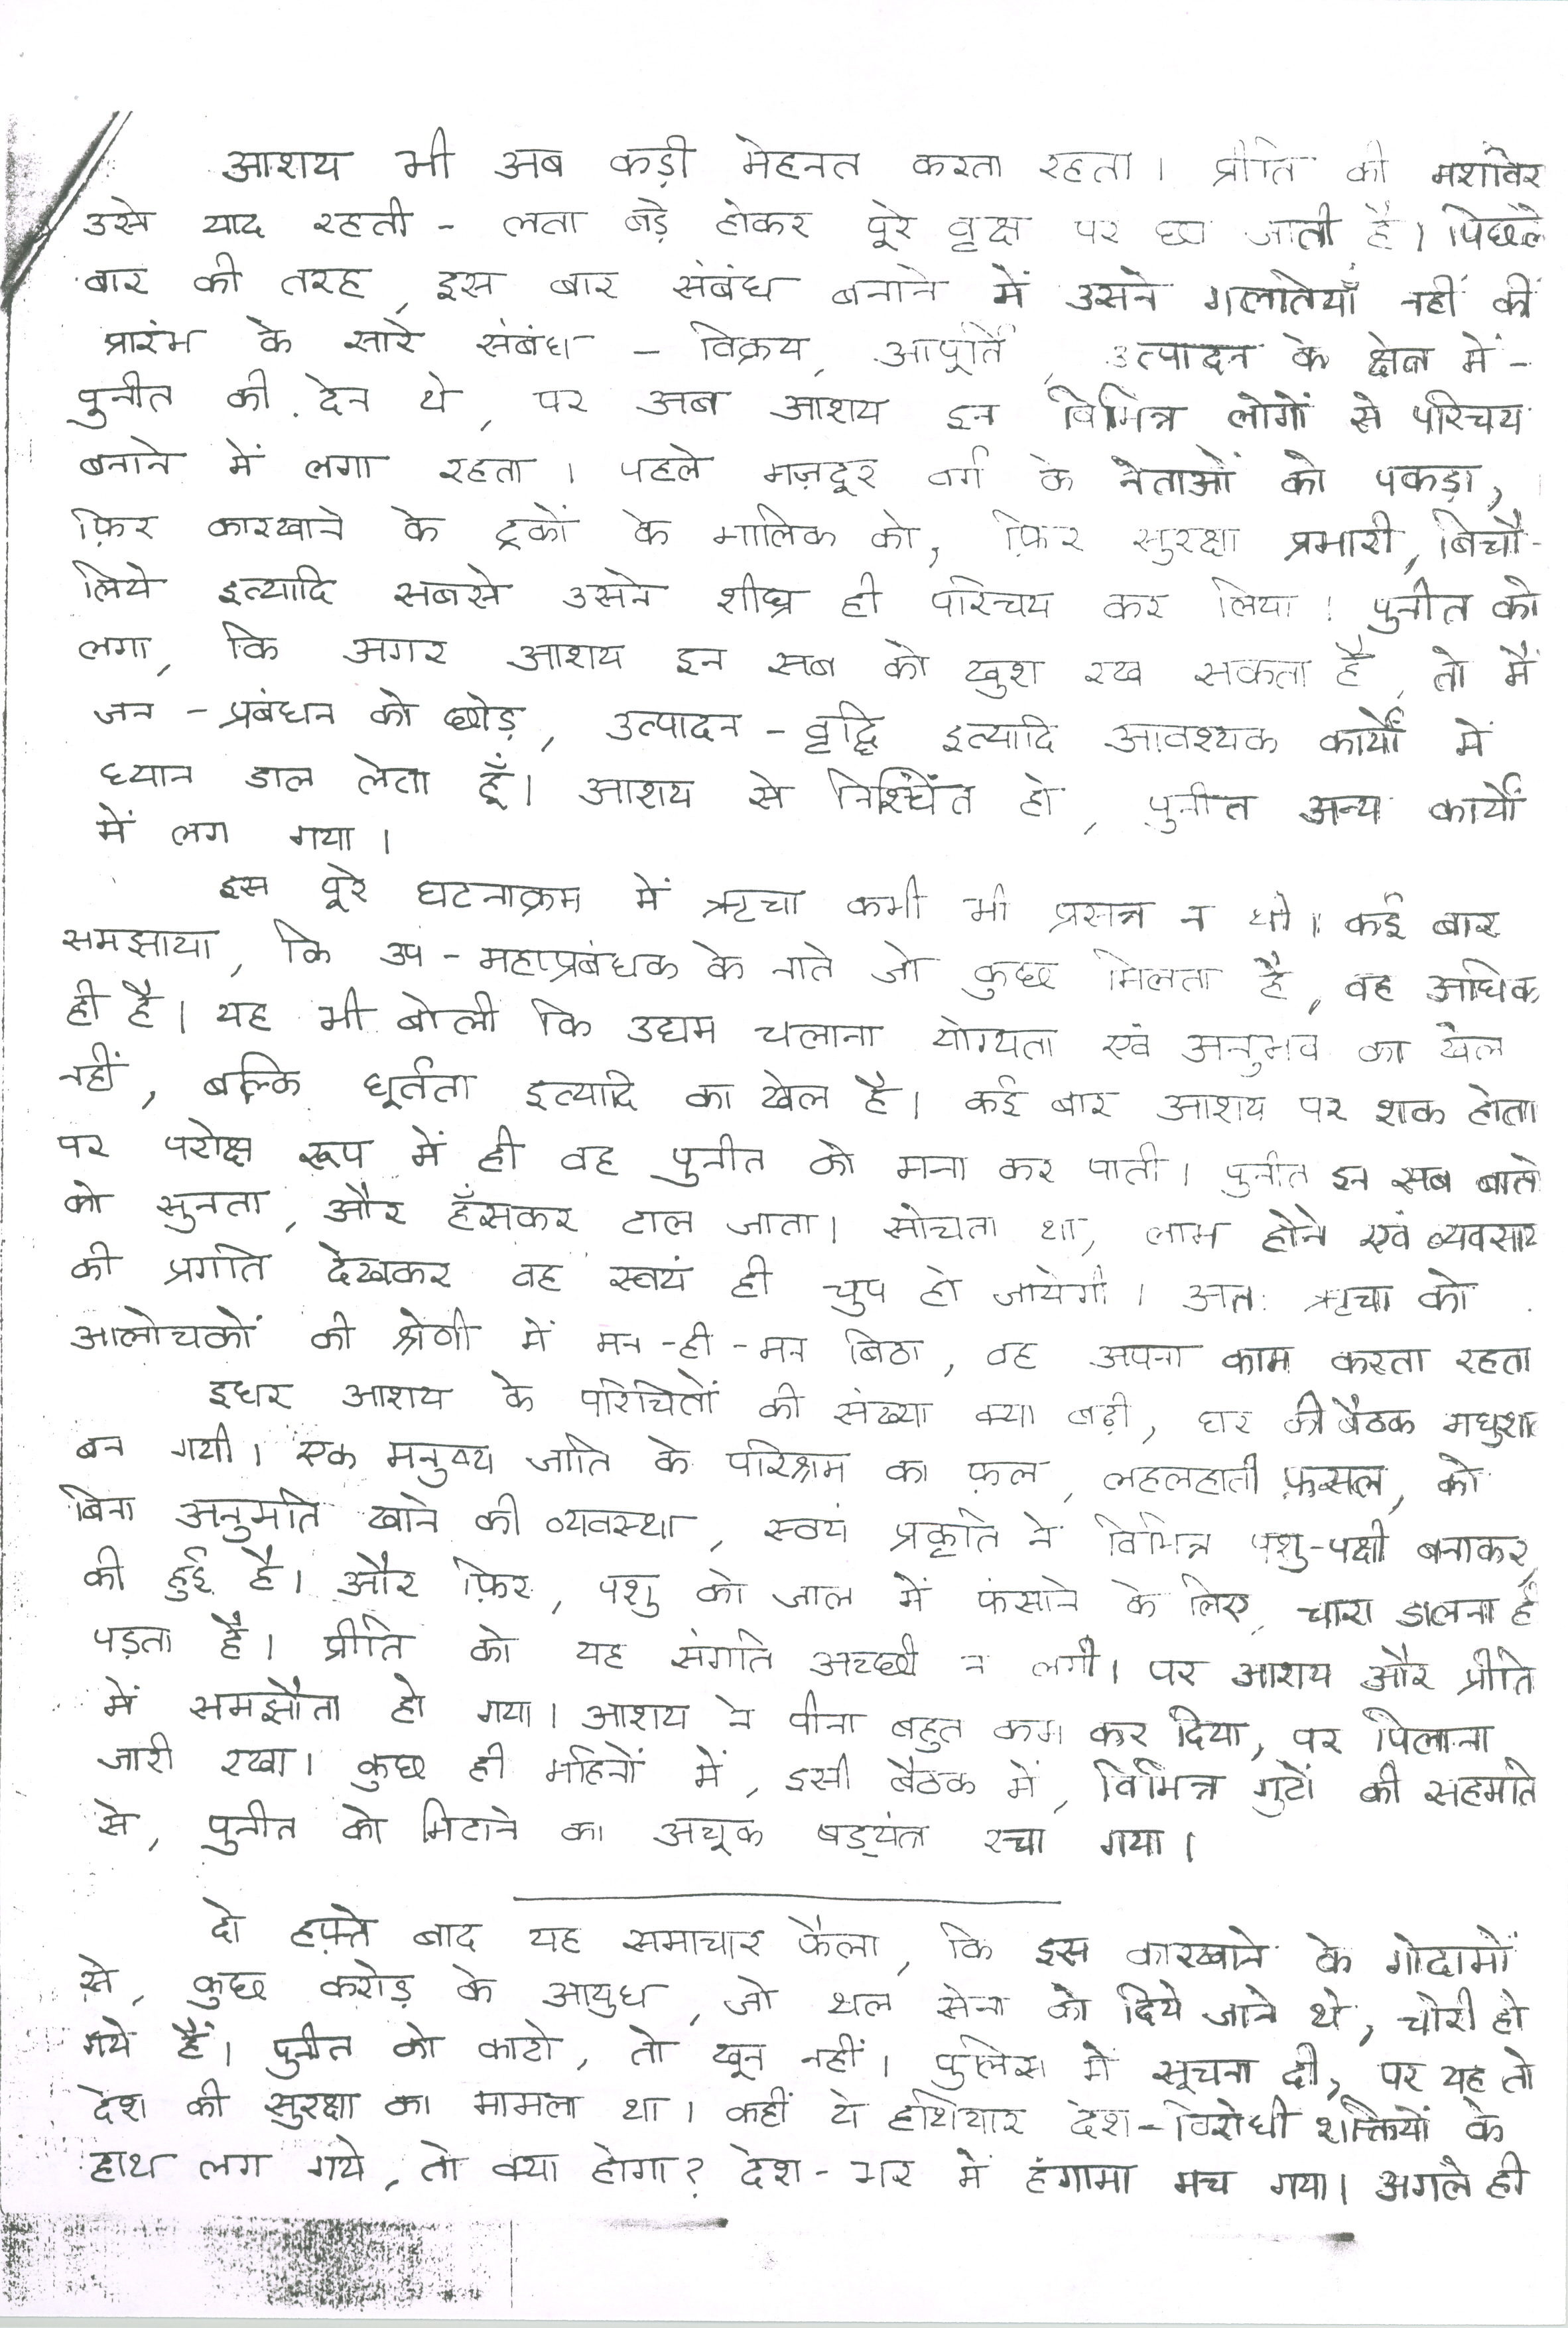 आशय भी अब कड़ी मेहनत करता रहता। प्रीति की मशविर
उसे याद रहती - लता बड़े होकर पूरे वृक्ष पर छा जाती है। पिछले
बार की तरह, इस बार संबंध बनाने में उसने गलतियाँ नहीं कीं
प्रारंभ के सारे संबंध - विक्रय, आपूर्ति, उत्पादन के क्षेत्र में -
पुनीत की देन थे, पर अब आशय इन विभिन्न लोगों से परिचय
बनाने में लगा रहता। पहले मज़दूर वर्ग के नेताओं को पकड़ा,
फ़िर कारखाने के ट्रकों के मालिक को, फ़िर सुरक्षा प्रभारी, बिचौ-
लिये इत्यादि सबसे उसने शीघ्र ही परिचय कर लिया। पुनीत को
लगा, कि अगर आशय इन सब को खुश रख सकता है, तो मैं
जन - प्रबंधन को छोड़, उत्पादन - वृद्धि इत्यादि आवश्यक कार्यों में
ध्यान डाल लेता हूँ। आशय से निश्चिंत हो, पुनीत अन्य कार्यों
में लग गया।
इस पूरे घटनाक्रम में ऋचा कभी भी प्रसन्न न थी। कई बार
समझाया, कि उप - महाप्रबंधक के नाते जो कुछ मिलता है, वह अधिक
ही है। यह भी बोली कि उद्यम चलाना योग्यता एवं अनुभव का खेल
नहीं, बल्कि धूर्तता इत्यादि का खेल है। कई बार आशय पर शक होता
पर परोक्ष रूप में ही वह पुनीत को मना कर पाती। पुनीत इन सब बातों
को सुनता, और हँसकर टाल जाता। सोचता था, लाभ होने एवं व्यवसाय
की प्रगति देखकर वह स्वयं ही चुप हो जायेगी। अतः ऋचा को
आलोचकों की श्रेणी में मन - ही - मन बिठा, वह अपना काम करता रहता
इधर आशय के परिचितों की संख्या क्या बढ़ी, घर की बैठक मधुशा
बन गयी। एक मनुष्य जाति के परिश्रम का फ़ल, लहलहाती फ़सल, को
बिना अनुमति खाने की व्यवस्था, स्वयं प्रकृति ने विभिन्न पशु-पक्षी बनाकर,
की हुई है। और फ़िर, पशु को जाल में फंसाने के लिए, चारा डालना ही
पड़ता है। प्रीति को यह संगति अच्छी न लगी। पर आशय और प्रीति
में समझौता हो गया। आशय ने पीना बहुत कम कर दिया, पर पिलाना
जारी रखा। कुछ ही महिनों में, इसी बैठक में, विभिन्न गुटों की सहमति
से, पुनीत को मिटाने का अचूक षड्यंत्र रचा गया।
दो हफ़्ते बाद यह समाचार फैला, कि इस कारखाने के गोदामों
से, कुछ करोड़ के आयुध, जो थल सेना को दिये जाने थे, चोरी हो
गये हैं। पुनीत को काटो, तो खून नहीं। पुलिस में सूचना दी, पर यह तो
देश की सुरक्षा का मामला था। कहीं ये हथियार देश-विरोधी शक्तियों के
हाथ लग गये, तो क्या होगा? देश - भर में हंगामा मच गया। अगले ही